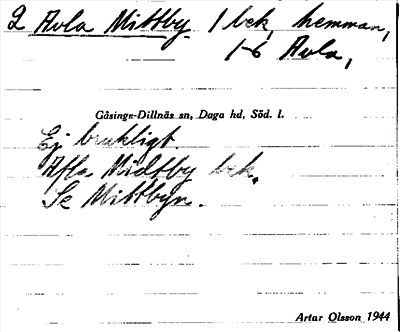 2 Avla Mittby. 1 bek. hemman,
1-6 Avla,
Gåsinge-Dillnäs sn, Daga hd, Söd. l.
Ej brukligt.
Afla Midtby bek.
Se Mittbyn.
Artur Olsson 1944